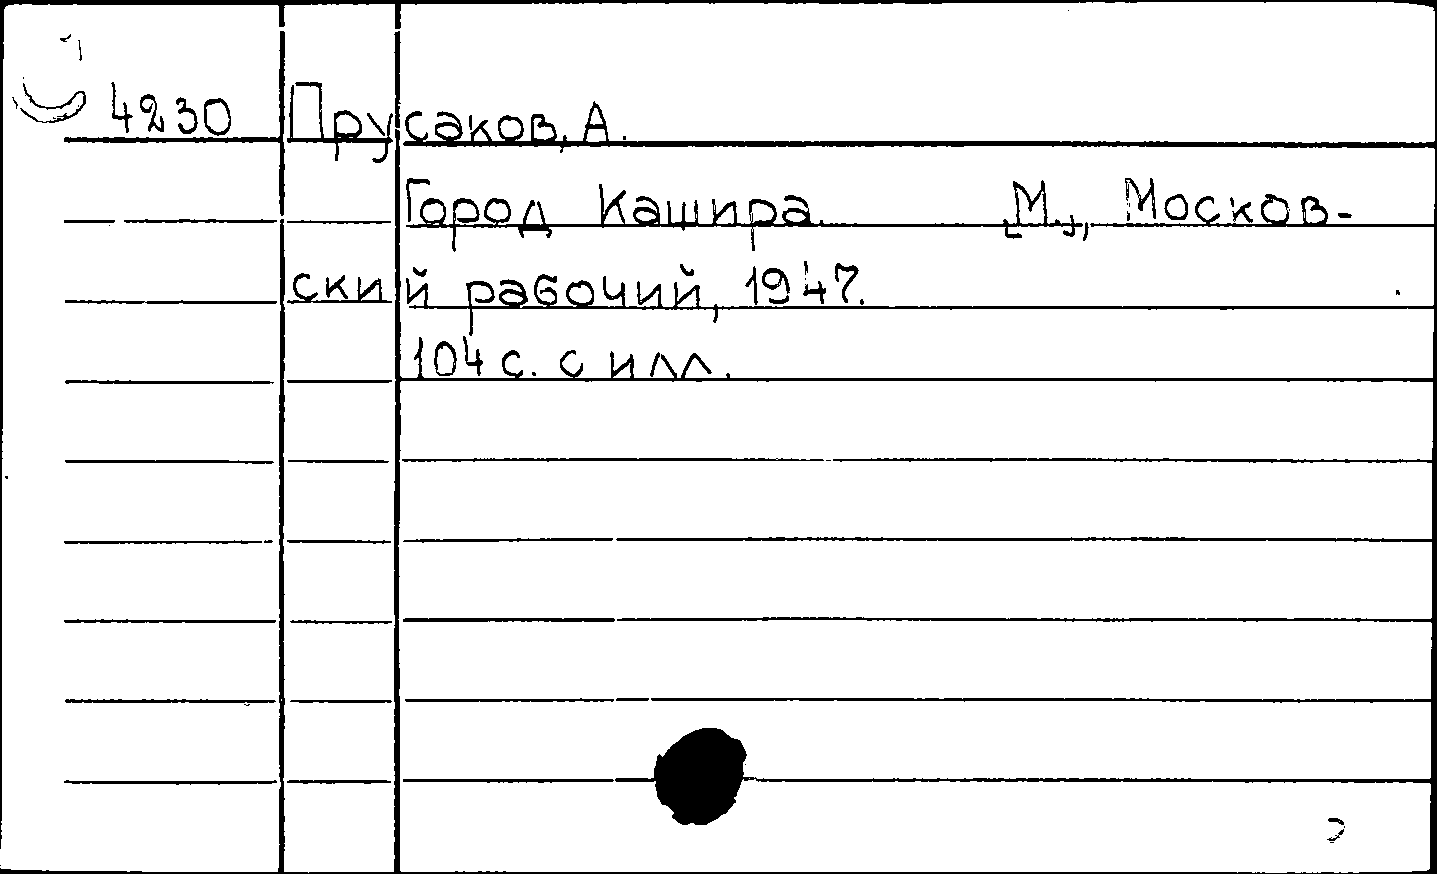 4230 Прусаков, А.
Город Кашира. [М.], Москов-
ский рабочий, 1947.
104 с. с илл.